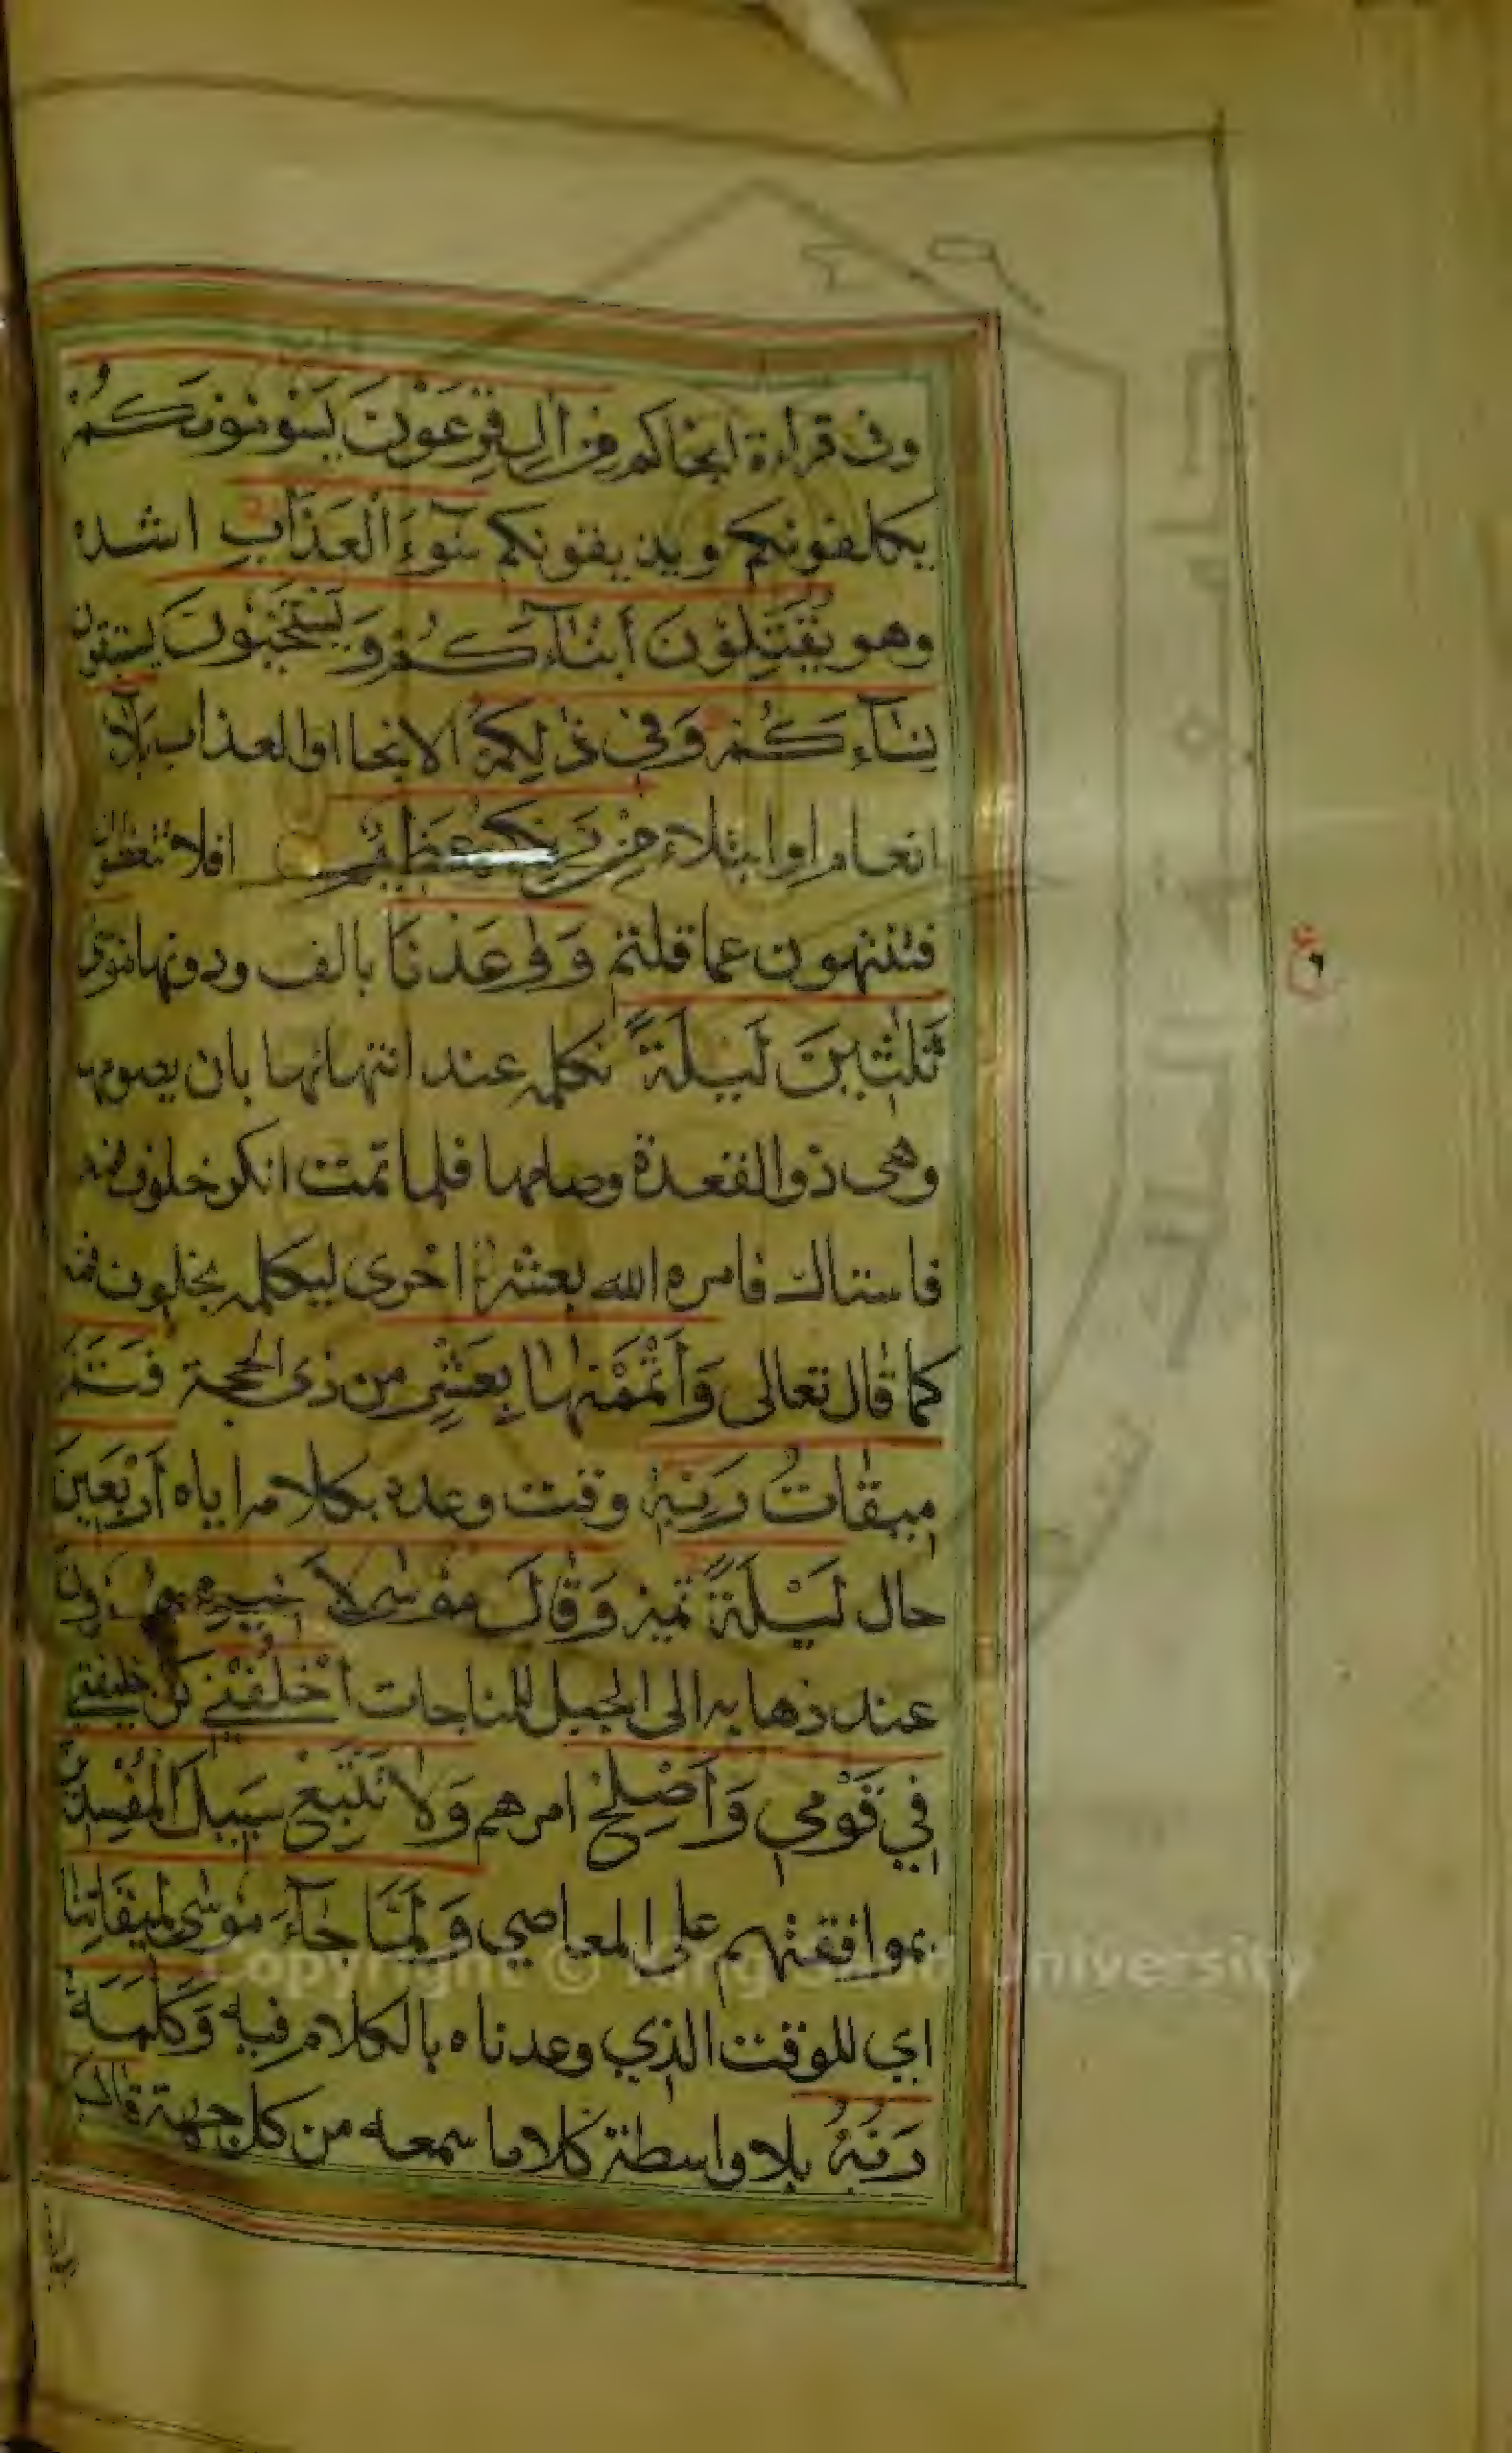 وفى قراءة انجاكم مِنْ اٰلِ فِرْعَوْنَ يَسُوْمُوْنَكُمْ
يكلفونكم ويذيقونكم سُوْٓءَ الْعَذَابِ اشده
وهو يُقَتِّلُوْنَ أَبْنَآءَكُمْ وَيَسْتَحْيُوْنَ يستبقون
نِسَآءَكُمْ وَفِى ذٰلِكُمْ الانجا اوالعذاب بَلَآءٌ
انعام اوابتلاء مِنْ رَبِّكُمْ عَظِيْمٌ افلا تتعظون
فتنتهون عما قلتم وَوٰعَدْنَا بالف ودونها مُوْسٰى
ثَلٰثِيْنَ لَيْلَةً نكلمه عند انتهائها بان يصومها
وهى ذوالقعدة وصامها فلما تمت انكر خلوف فمه
فاستاك فامره الله بعشرة اخرى ليكلمه بخلوف فمه
كما قال تعالى وَأَتْمَمْنٰهَا بِعَشْرٍ من ذى الحجة فَتَمَّ
مِيْقَاتُ رَبِّهٖ وقت وعده بكلامه اياه أَرْبَعِيْنَ
حال لَيْلَةً تميز وَقَالَ مُوْسٰى لِأَخِيْهِ هٰرُوْنَ
عند ذهابه الى الجبل للمناجات اُخْلُفْنِيْ كن خليفتي
فِي قَوْمِي وَأَصْلِحْ امرهم وَلَا تَتَّبِعْ سَبِيْلَ الْمُفْسِدِيْنَ
بموافقتهم على المعاصي وَلَمَّا جَآءَ مُوْسٰى لِمِيْقَاتِنَا
اي للوقت الذي وعدناه بالكلام فيه وَكَلَّمَهٗ
رَبُّهٗ بلا واسطة كلاما سمعه من كل جهة قَالَ
Copyright © King Saud University